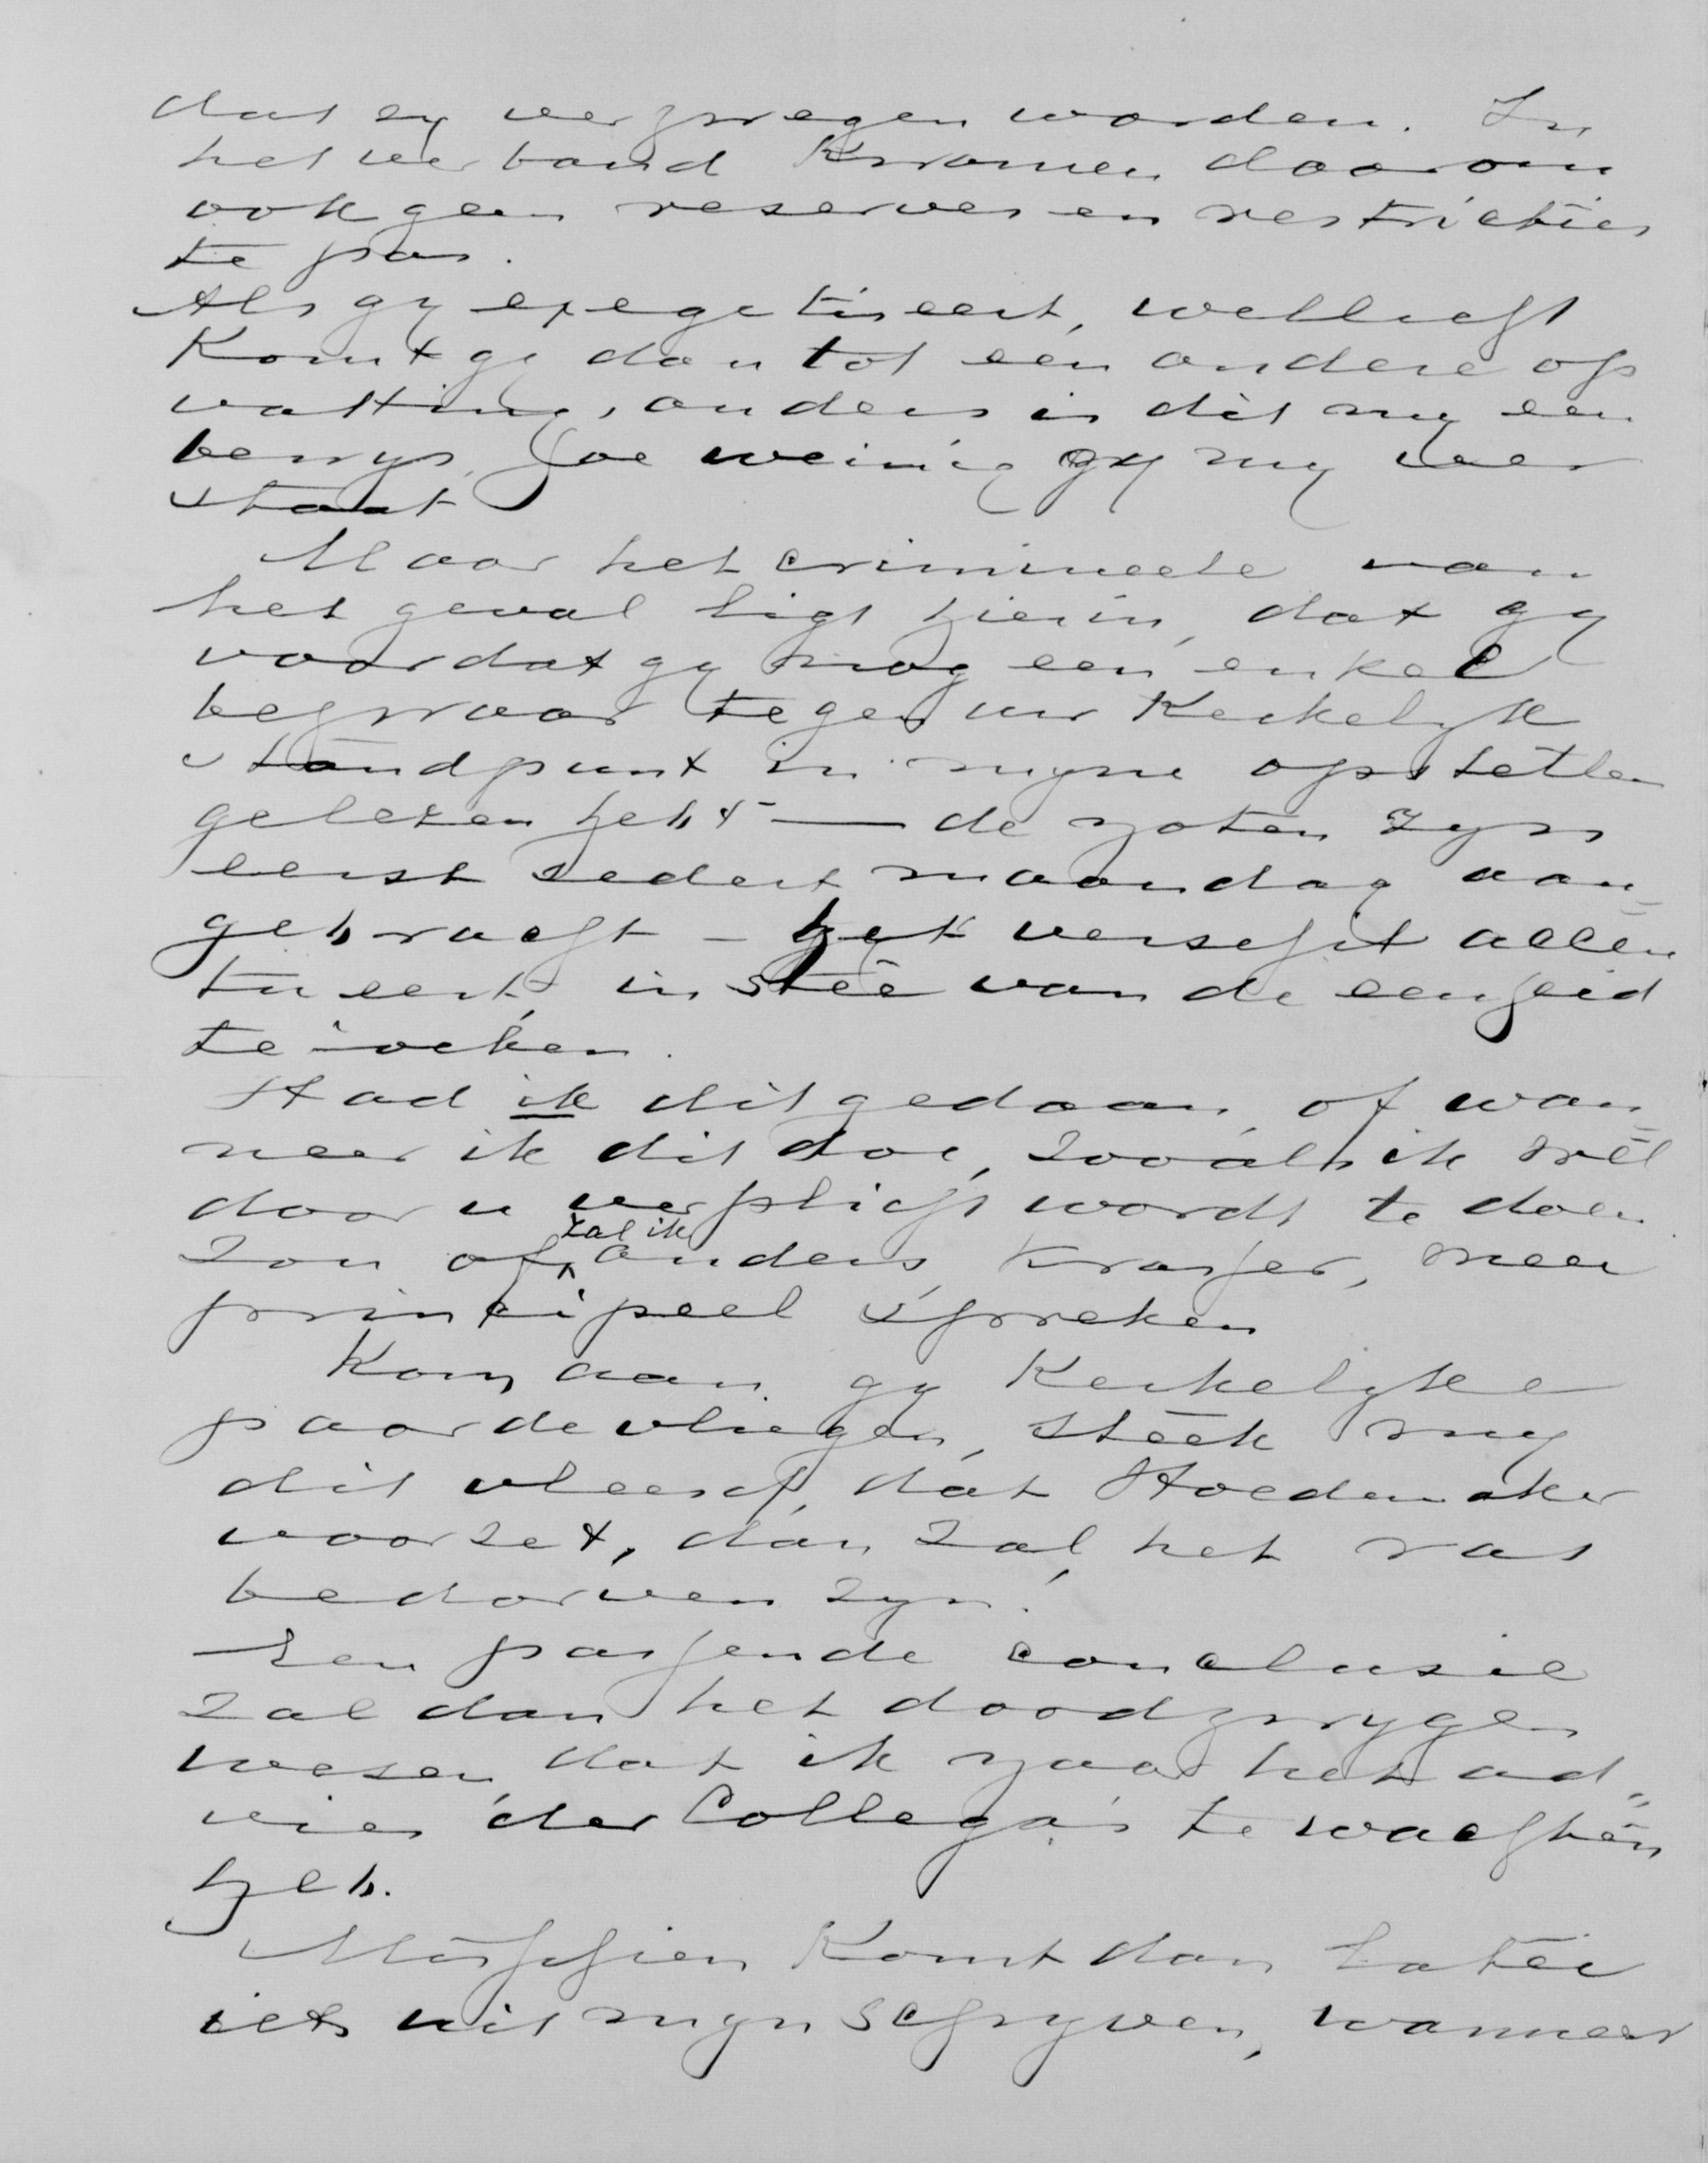 dat zy verzwegen worden. In
het verband kwamen daarom
ook geen reserves en restricties
te pas.
Als gy exegetiseert, wellicht
komt gy dan tot een andere op
vatting, anders is dit my een
bewys, hoe weinig gy my ver
staat
Maar het crimineele van
het geval ligt hierin, dat gy
voordat gy nog een enkel
bezwaar tegen uw Kerkelyk
standpunt in myne opstellen
gelezen hebt — de noten zyn
eerst sedert maandag aan
gebracht — het verschil accen
tueert, in stêe van de eenheid
te zoeken.
Had ik dit gedaan, of wan
neer ik dit doe, zooals ik wel
door u verplicht wordt te doen
zou of zal ik anders, krasser, meer
principeel spreken
Kom aan gy Kerkelyke
paardevliegen, steek my
dit vleesch, dat Hoedemaker
voorzet, dan zal het ras
bedorven zyn!
Een passende conclusie
zal dan het doodzwygen
wezen, dat ik naar het ad„
vies der Collega's te wachten
heb.
Misschien komt dan later
iets uit myn schryven, wanneer